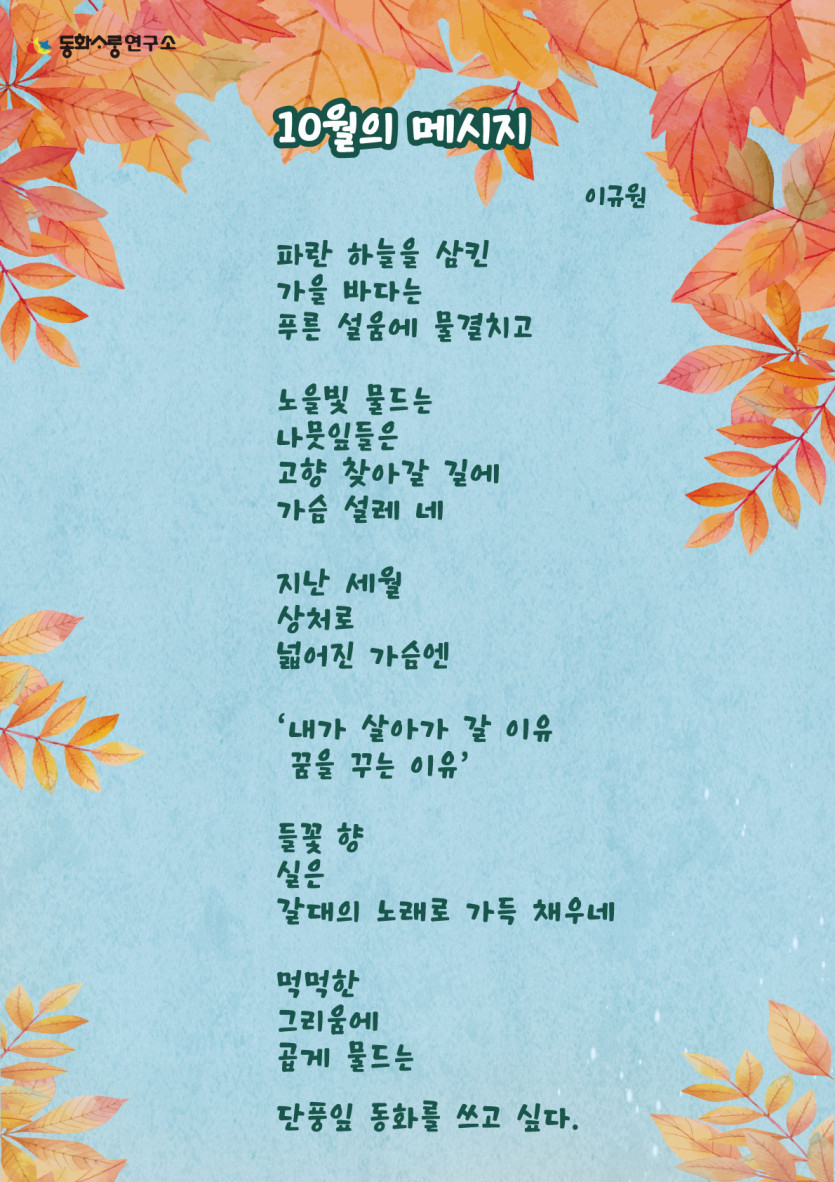 동화스룽연구소
10월의 메시지
이규원
파란 하늘을 삼킨
가을 바다는
푸른 설움에 물결치고
노을빛 물드는
나뭇잎들은
고향 찾아갈 길에
가슴 설레 네
지난 세월
상처로
넓어진 가슴엔
‘내가 살아가 갈 이유
꿈을 꾸는 이유’
들꽃 향
실은
갈대의 노래로 가득 채우네
먹먹한
그리움에
곱게 물드는
단풍잎 동화를 쓰고 싶다.